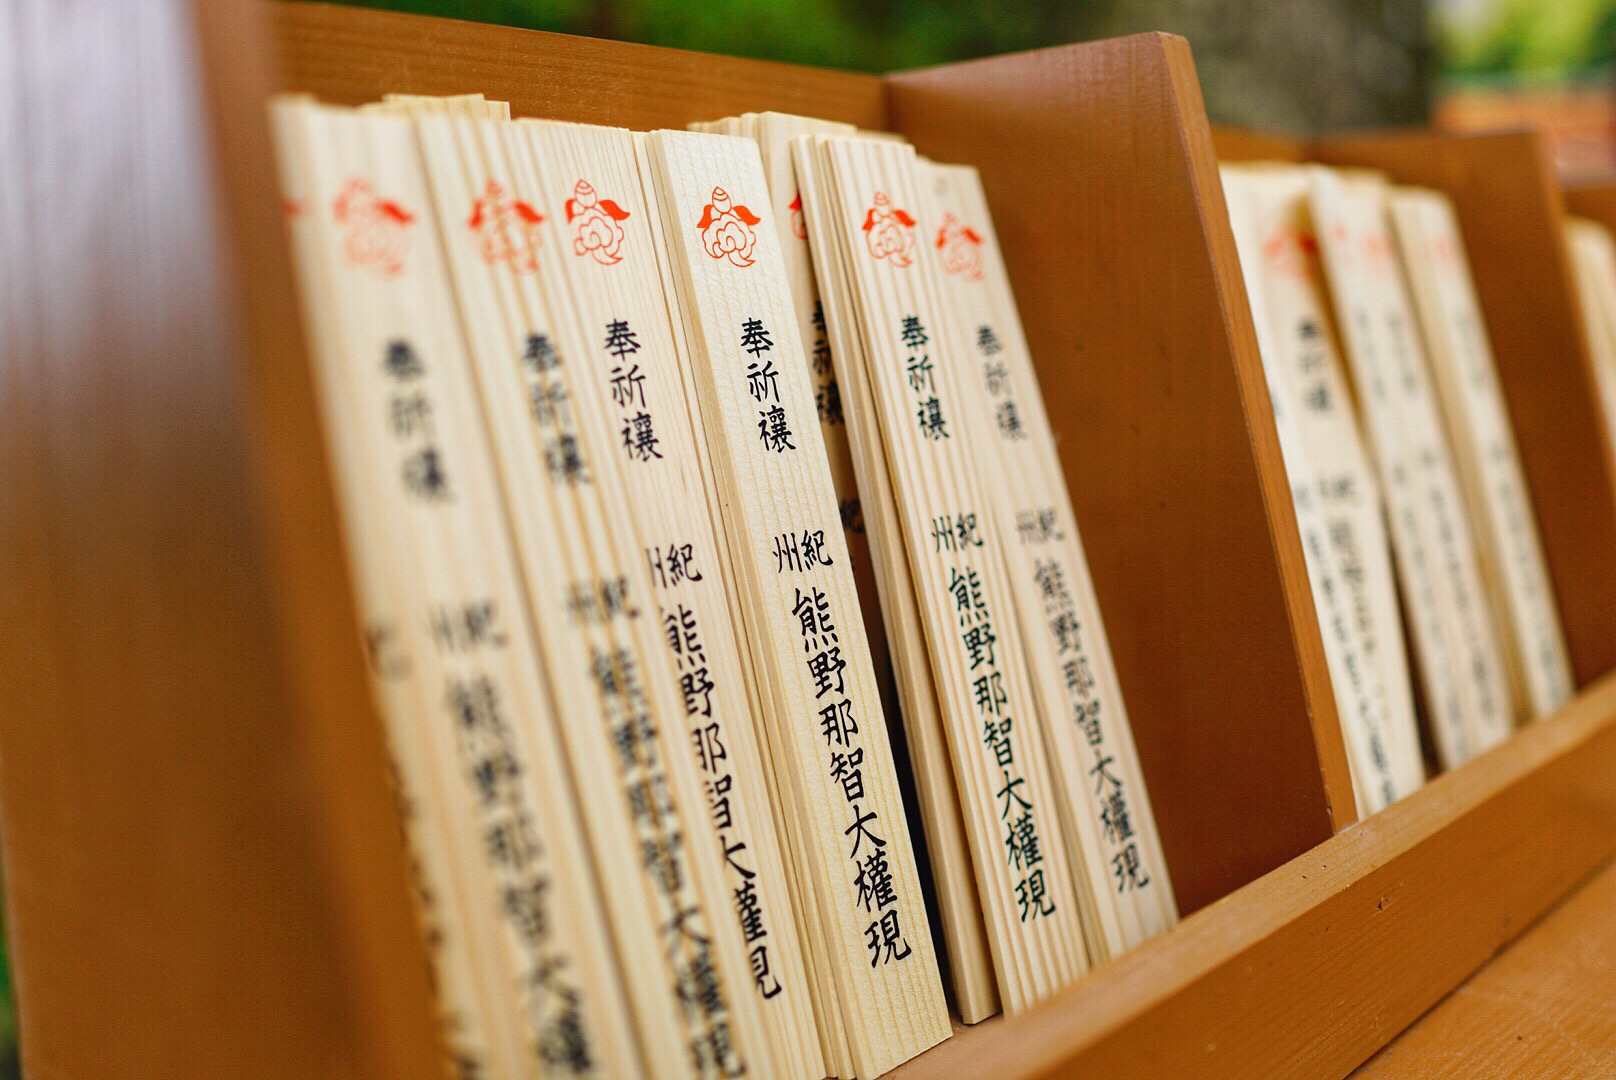 奉祈禳
紀州
熊野那智大權
奉祈禳
紀州
熊野那智大權現
奉祈禳
紀州
熊野那智大權現
奉祈禳
紀州
熊野那智大權現
奉祈禳
紀州
熊野那智大權現
奉祈禳
紀州
熊野那智大權現